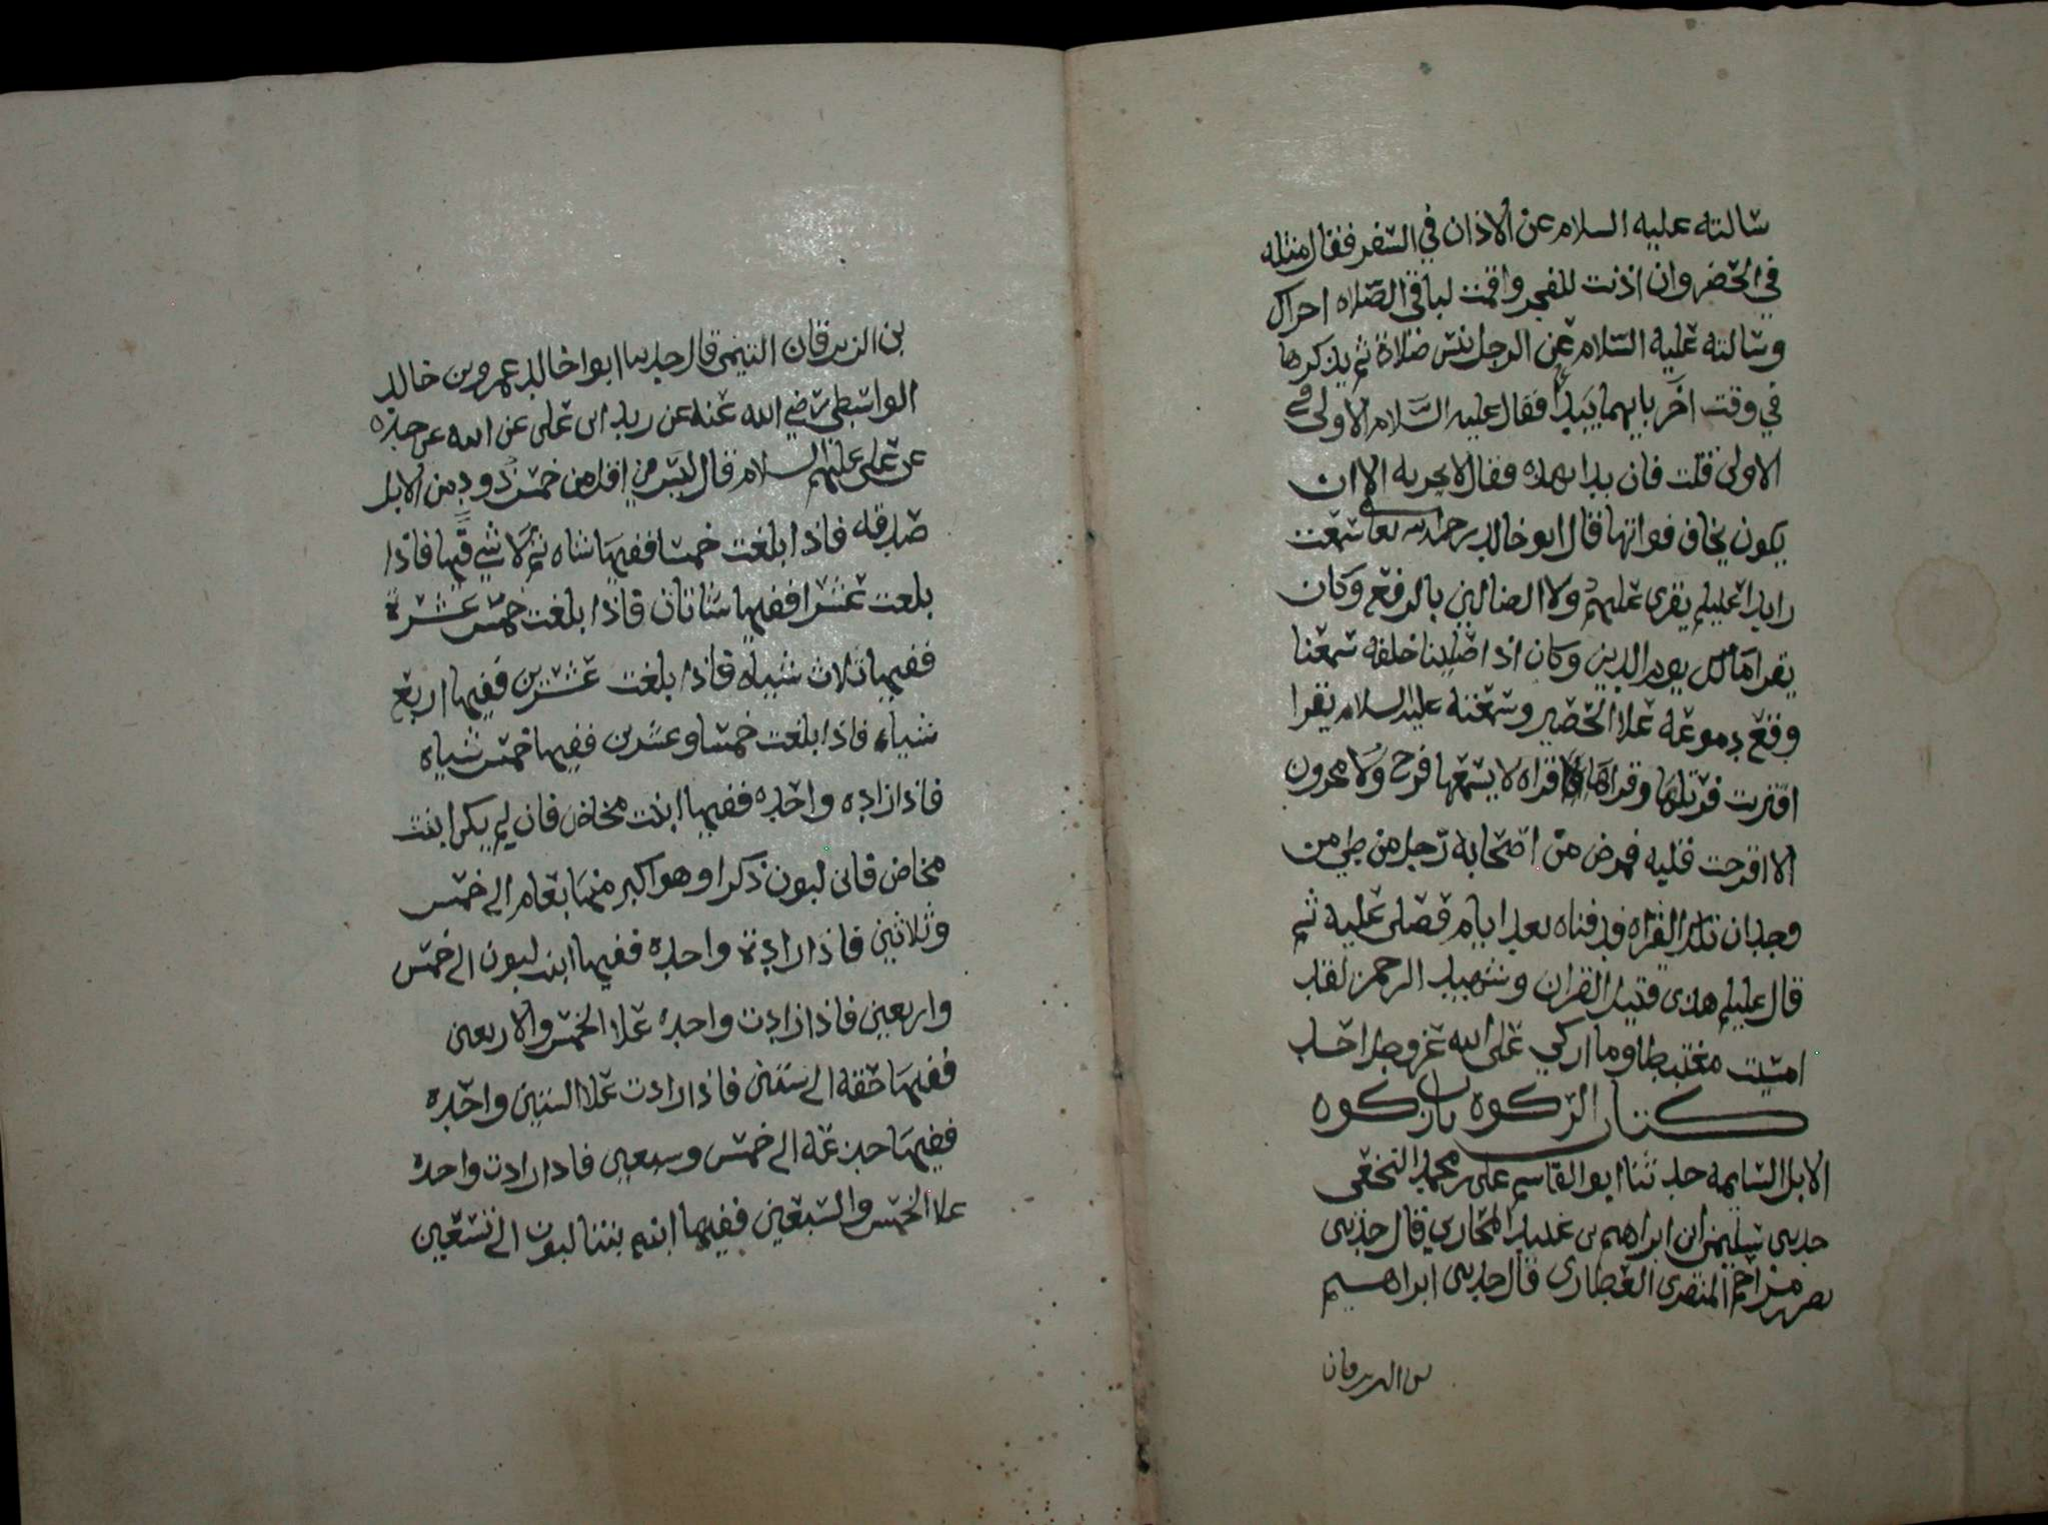 سالته عليه السلام عن الاذان في السفر فقال مثله
في الحضر وان اذنت للفجر واقمت لباقي الصلاه اجزاك
وسالته عليه السلام عن الرجل ينسى صلاة ثم يذكرها
في وقت اخر بايهما يبدا فقال عليه السلام الاولى في
الاولى قلت فان بدا بهذه فقال لا يجزيه الا ان
يكون يخاف فواتها قال ابو خالد رحمه الله تعالى سمعت
زيدا عليلم يقرى عليهم ولا الضالين بالرفع وكان
يقرا مالك يوم الدين وكان اذا صلينا خلفه سمعنا
وقع دموعه علا الحصير وسمعته عليه السلام يقرا
اقتربت فرتلها وقراها قراه لا يسمعها فرح ولا محزون
الا اقرحت قلبه فمرض من اصحابه رجل من طي من
وجدان تلك القراه فدفناه بعد ايام فصلى عليه ثم
قال عليلم هذى قتيل القران وشهيد الرحمن لقد
امسيت مغتبطا وما ازكي على الله عز وجل احد
كتاب الزكوة باب زكوه
الابل السايمه حدثنا ابو القاسم على بن محمد النخعي
حدثني سليمن ابن ابراهيم بن عبيد المحاربي قال حدثني
نصر بن مزاحم المنقري العطاري قال حدثني ابراهيم
بن الزبرقان
بن الزبرقان التيمي قال حدثنا ابوا خالد عمرو بن خالد
الواسطي رضي الله عنه عن زيد ابن على عن ابيه عن جده
عن على عليهم السلام قال ليس في اقل من خمس ذود من الابل
صدقه فاذا بلغت خمسا ففيها شاه ثم لا شي فيها فاذا
بلغت عشرا ففيها شاتان فاذا بلغت خمس عشرة
ففيها ثلاث شياه فاذا بلغت عشرين ففيها اربع
شياه فاذا بلغت خمسا وعشرين ففيها خمس شياه
فاذا زاده واحده ففيها ابنت مخاض فان لم يكن ابنت
مخاض فابن لبون ذكرا وهو اكبر منها بعام الى خمس
وثلاثين فاذا زادة واحدة ففيها ابنت لبون الى خمس
واربعين فاذا زادت واحده علا الخمس والاربعين
ففيها حقه الى ستين فاذا زادت علا الستين واحده
ففيها جذعه الى خمس وسبعين فاذا زادت واحدة
علا الخمس والسبعين ففيها ابنتا لبون الى تسعين